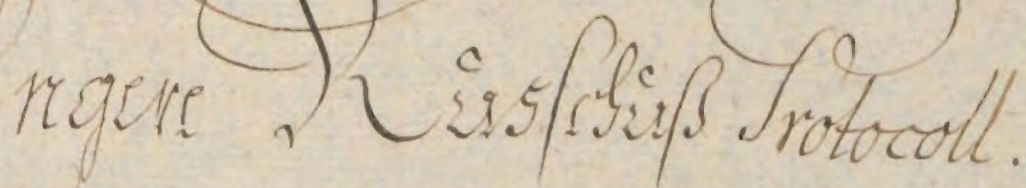 ngere Ausschuß Protocoll.